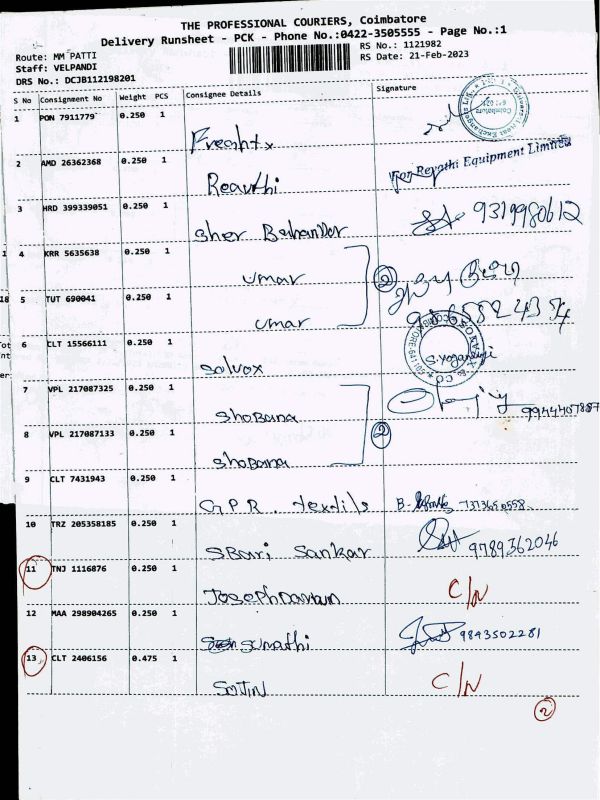 THE PROFESSIONAL COURIERS, Coimbatore
Delivery Runsheet - PCK - Phone No.:0422-3505555 - Page No.:1
Route: MM PATTI
Staff: VELPANDI
DRS No.: DCJB112198201
RS No.: 1121982
RS Date: 21-Feb-2023
S No Consignment No Weight PCS Consignee Details Signature
1 PON 7911779 0.250 1
2 AMD 26362368 0.250 1
For Revathi Equipment Limited
3 HRD 399339051 0.250 1
Sher Bahandur 9319980612
4 KRR 5635638 0.250 1
umar 2
5 TUT 690041 0.250 1
umar
6 CLT 15566111 0.250 1
Solvox
7 VPL 217087325 0.250 1
Shobana
8 VPL 217087133 0.250 1
Shobana 2
9 CLT 7431943 0.250 1
G.P.R. textils
10 TRZ 205358185 0.250 1
Sankar 9789362046
11 TNJ 1116876 0.250 1
C/N
12 MAA 298904265 0.250 1
Sumathi 9843502281
13 CLT 2406156 0.475 1
C/N
2